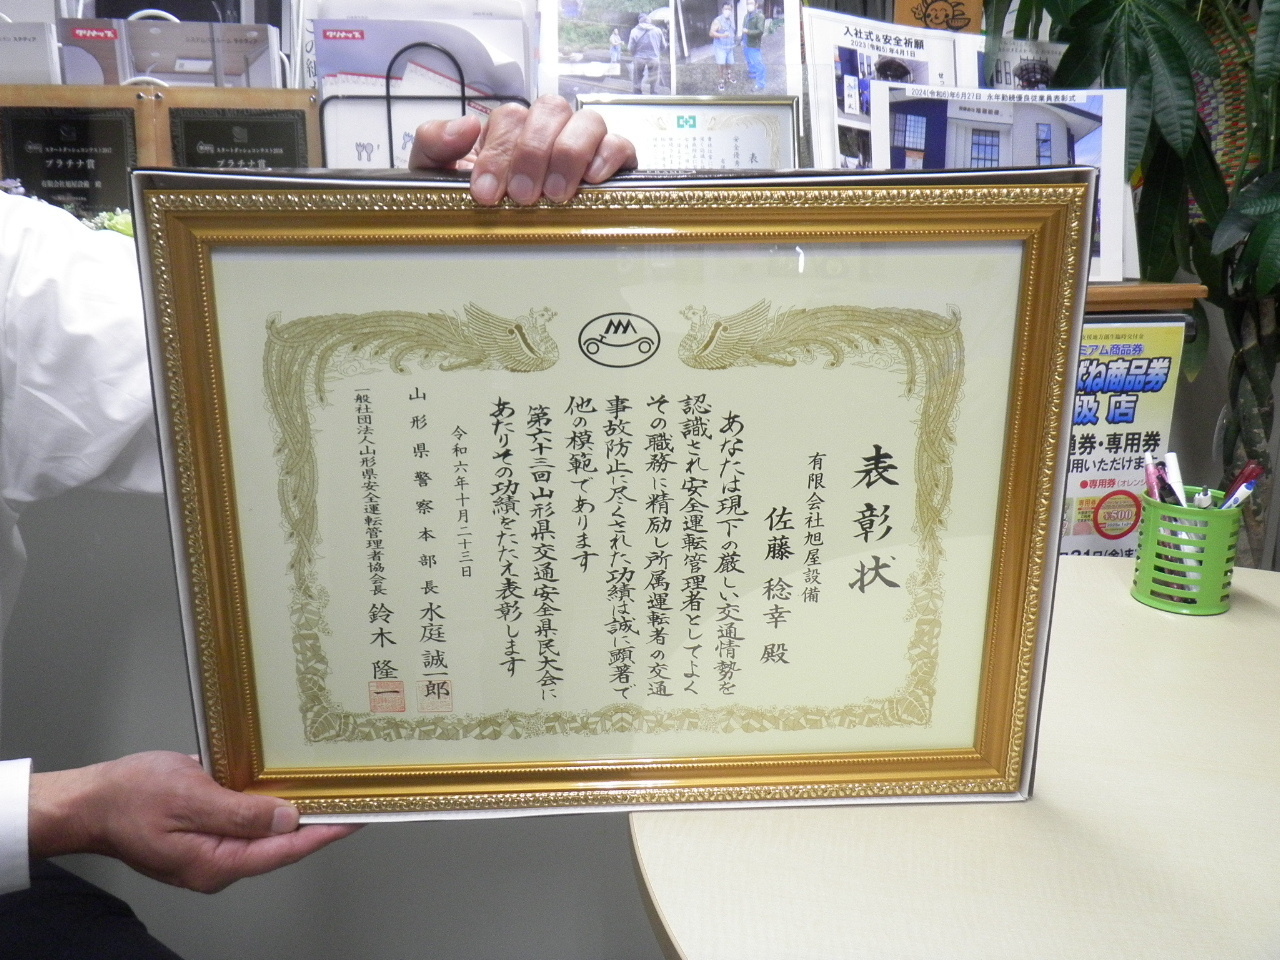 表彰状
有限会社旭屋設備
佐藤稔幸殿
あなたは現下の厳しい交通情勢を
認識され安全運転管理者としてよく
その職務に精励し所属運転者の交通
事故防止に尽くされた功績は誠に顕著で
他の模範であります
第六十三回山形県交通安全県民大会に
あたりその功績をたたえ表彰します
令和六年十月二十三日
山形県警察本部長 水庭誠一郎
一般社団法人山形県安全運転管理者協会長 鈴木隆一
クリナップ
クリナップ
プラチナ賞
プラチナ賞
入社式&安全祈願
2023(令和5)年4月1日
2024(令和6)年6月27日 永年勤続優良従業員表彰式
表
ミアム商品券
ばね商品券
扱店
通券・専用券
用いただけま
●専用券
¥500